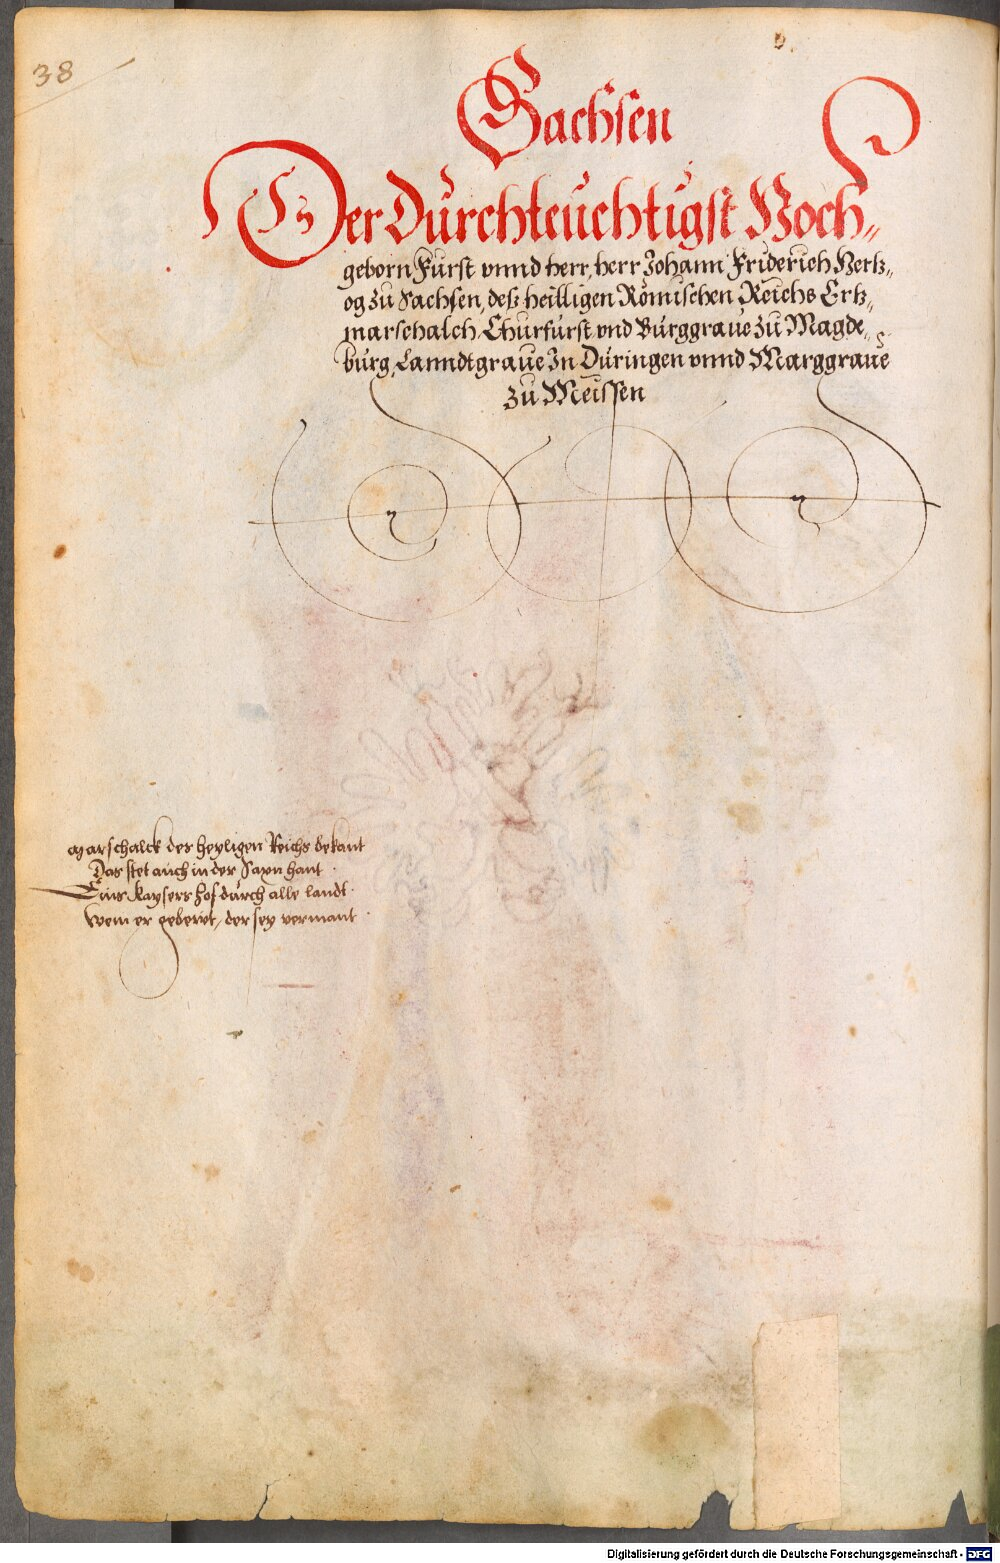 38
Sachsen
Der Dürchleüchtigst Hoch„
geborn Fürst vnnd herr, herr Johann Friderich Hertz„
og zü Sachsen, desz heilligen Römischen Reichs Ertz„
marschalch Chürfürst vnd Bürggraue zü Magde„
bürg, Lanndtgraue In Düringen vnnd Marggraue
zü Meissen
Marschalck des heyligen Reichs bekant
Das stet auch in der Saxn hant
Eins kaysers hof dürch alle landt
Wem er gebewt, der sey vermant
Digitalisierung gefördert durch die Deutsche Forschungsgemeinschaft - DFG